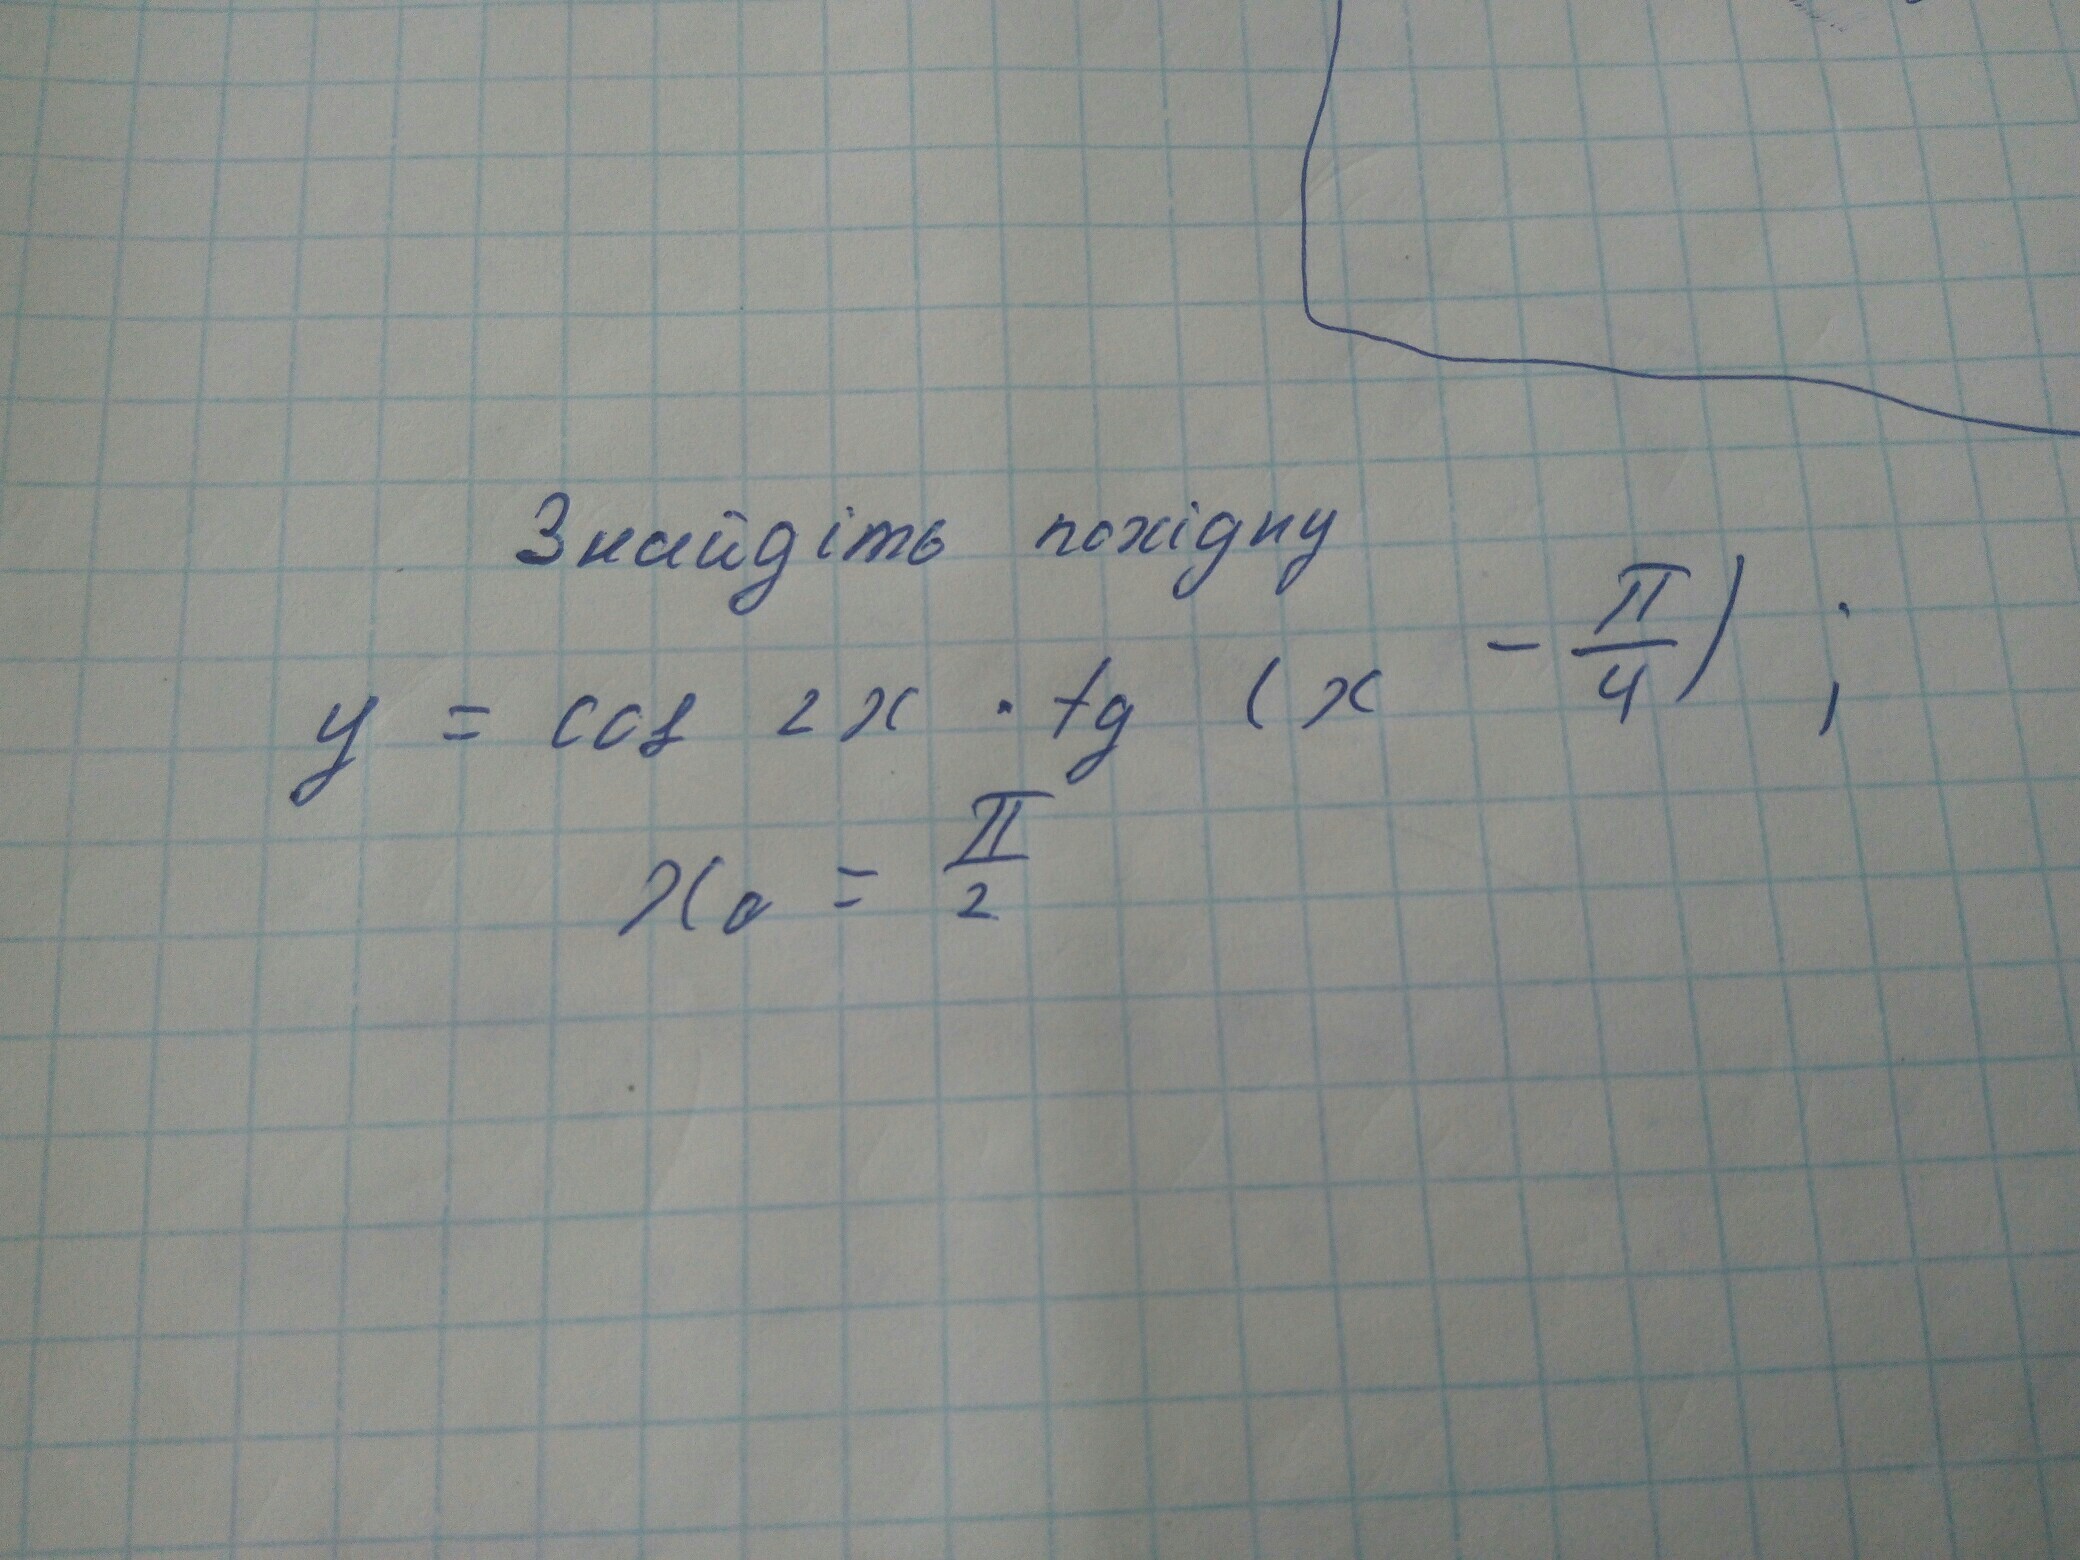 Знайдіть похідну
y = cos 2x · tg (x - π/4) ;
x₀ = π/2